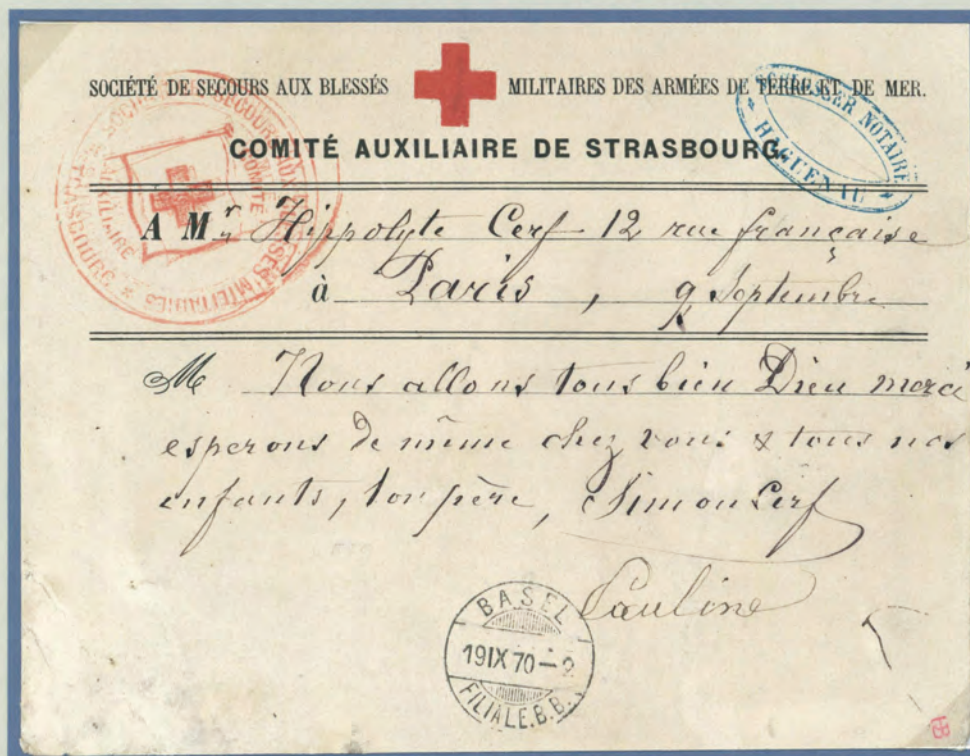 SOCIÉTÉ DE SECOURS AUX BLESSÉS MILITAIRES DES ARMÉES DE TERRE ET DE MER.
COMITÉ AUXILIAIRE DE STRASBOURG
SCHLOSSER NOTAIRE
HAGUENAU
SOCIÉTÉ DE SECOURS AUX BLESSÉS MILITAIRES
COMITÉ AUXILIAIRE
STRASBOURG
A Mr Hippolyte Cerf 12 rue française
à Paris, 9 Septembre
M Nous allons tous bien Dieu merci
esperons de même chez vous & tous nos
enfants, ton père, Simon Cerf
Pauline
BASEL
19 IX 70 - 9
FILIALE.B.B.